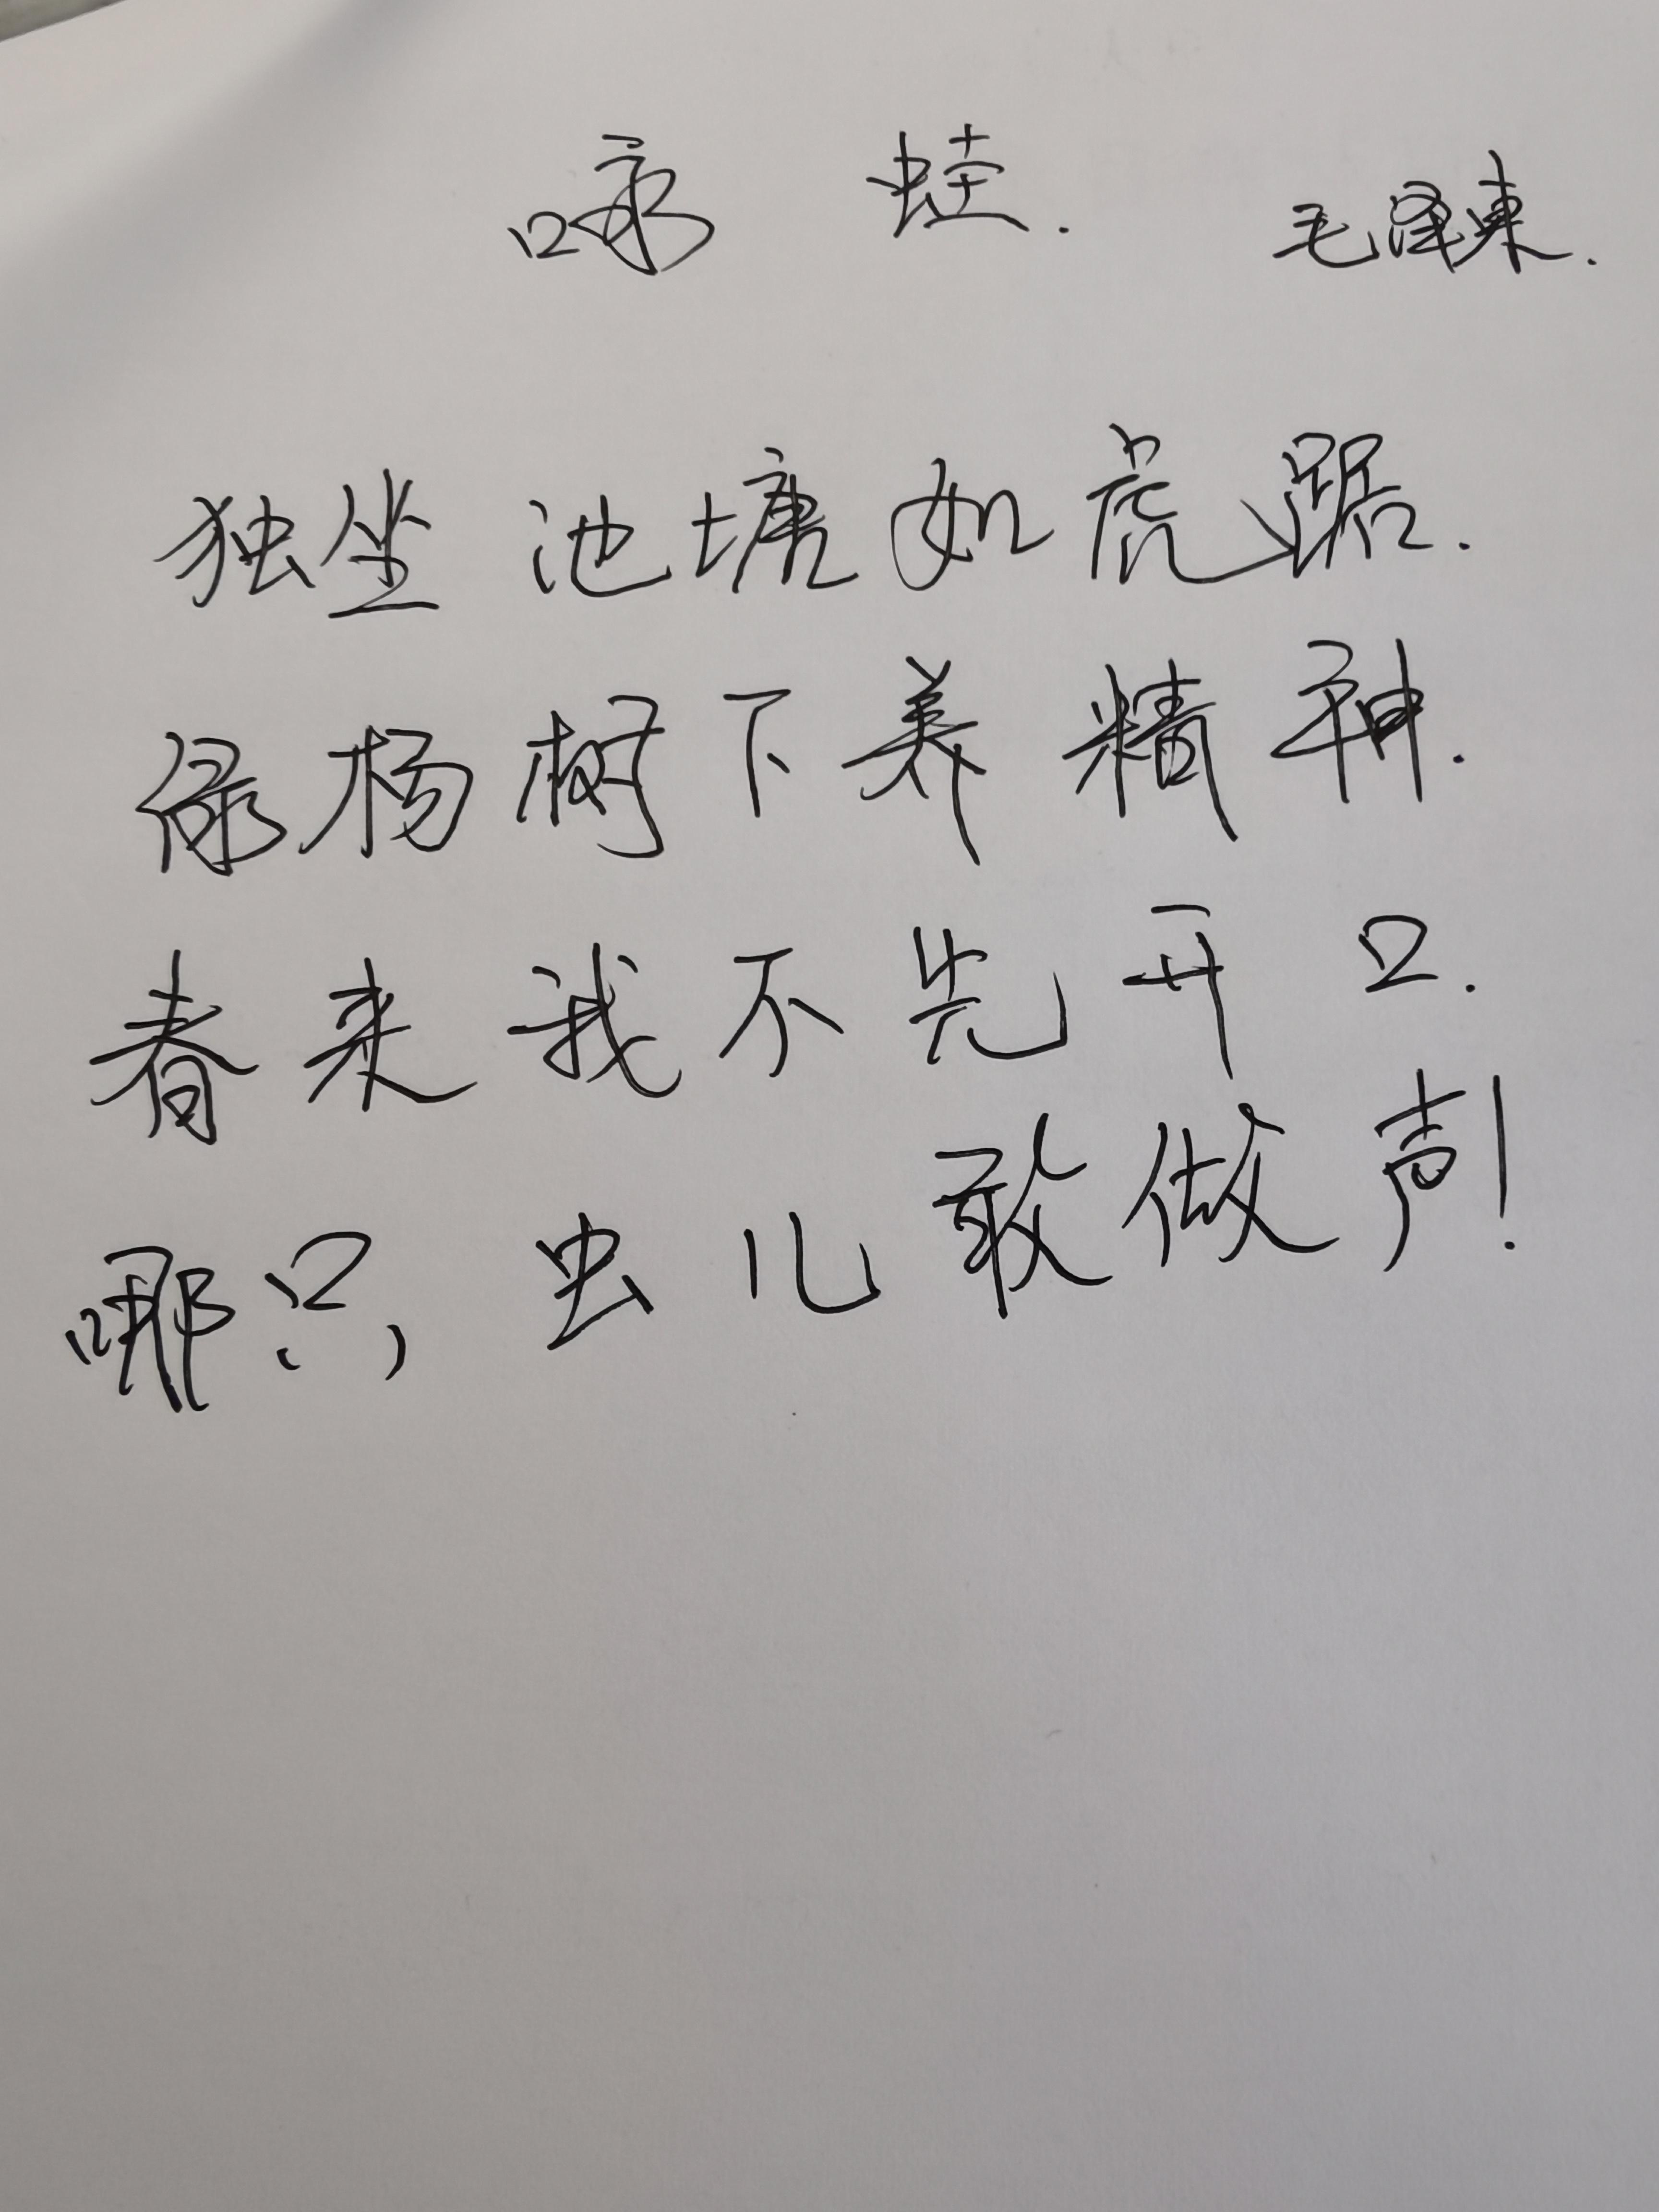 咏蛙. 毛泽東.
独坐池塘如虎踞.
绿杨树下养精神.
春来我不先开口.
哪只虫儿敢做声!